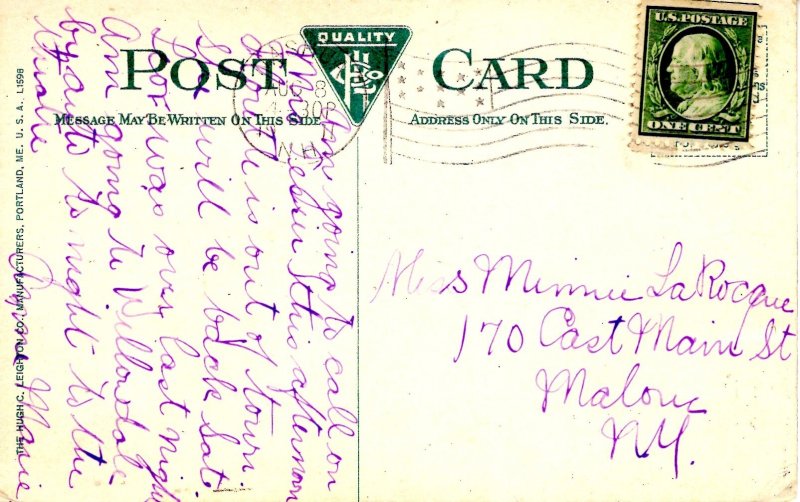 POST CARD
QUALITY
H C L Co
MESSAGE MAY BE WRITTEN ON THIS SIDE
ADDRESS ONLY ON THIS SIDE.
U.S. POSTAGE
ONE CENT
8
30P
N.H.
THE HUGH C. LEIGHTON CO., MANUFACTURERS, PORTLAND, ME. U. S. A. L1598
Am going to call on
this afternoon
is out of town
will be back Sat.
was over last night
Am going to Willowdale
by auto to night to the
Marie
Miss Minnie LaRocque
170 East Main St
Malone
N.Y.